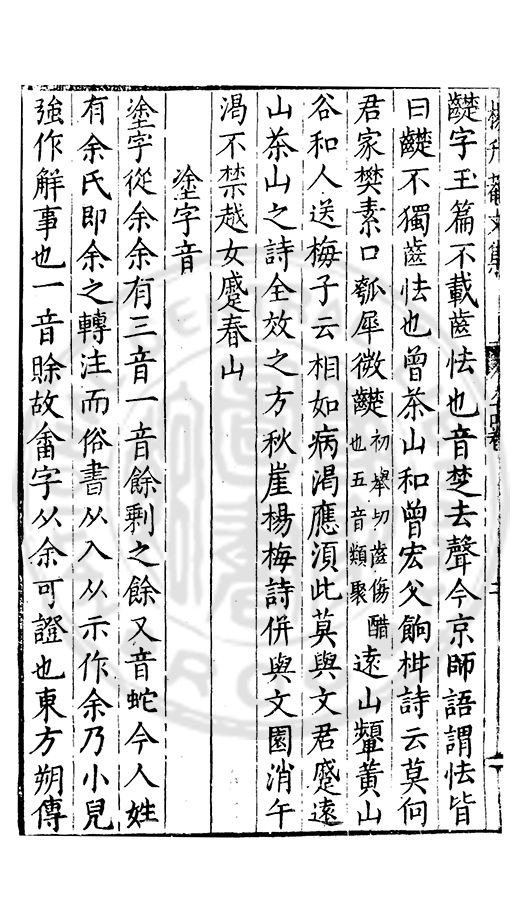 楊升菴文集
齼字玉篇不載齒怯也音楚去聲今京師語謂怯皆
曰齼不獨齒怯也曾茶山和曾宏父餉柑詩云莫向
君家樊素口瓠犀微齼初舉切齒傷醋也五音類聚遠山顰黄山
谷和人送梅子云相如病渴應湏此莫與文君蹙遠
山茶山之詩全效之方秋崖楊梅詩併與文園消午
渴不禁越女蹙春山
塗字音
塗字從余余有三音一音餘剩之餘又音蛇今人姓
有余氏即余之轉注而俗書从入从示作佘乃小兒
強作觧事也一音賖故畬字从余可證也東方朔傳